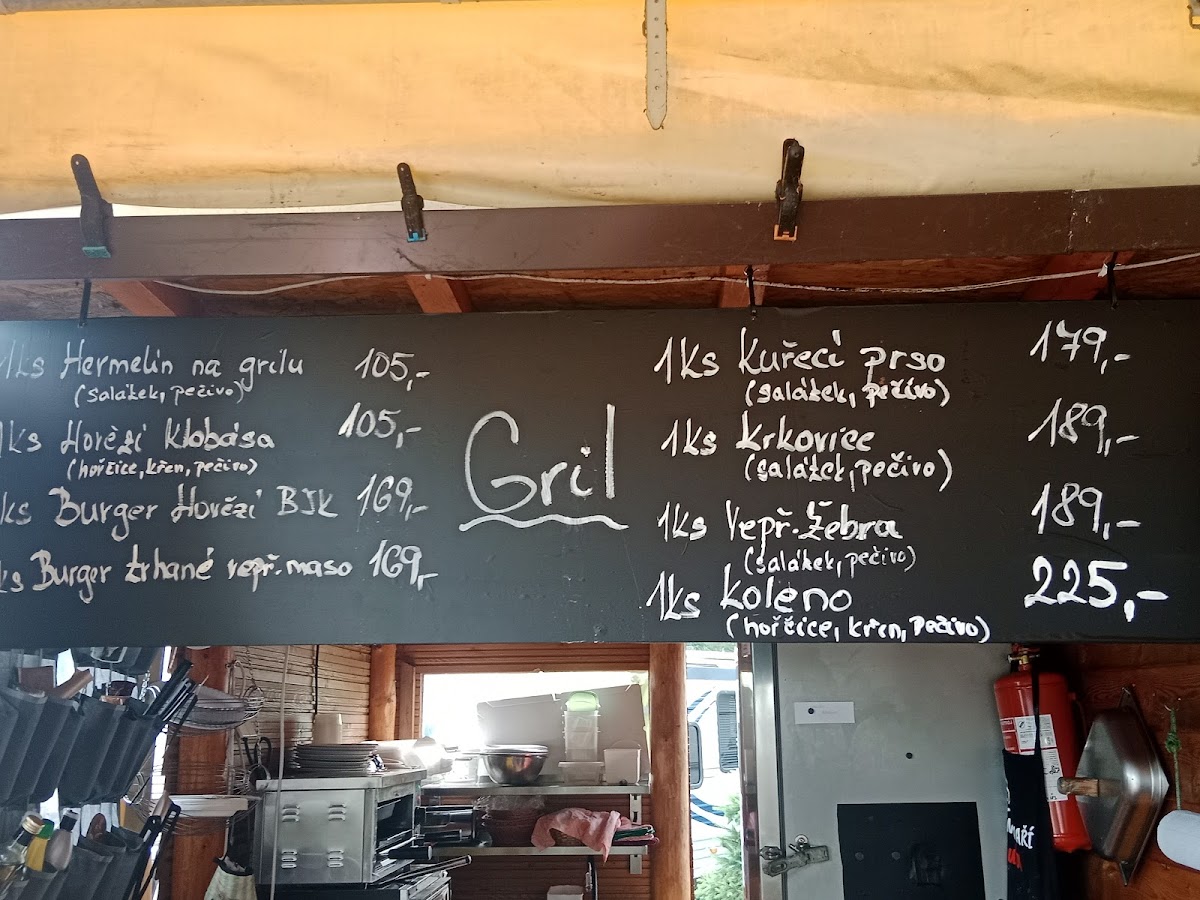 1ks Hermelín na grilu 105,-
(salátek, pečivo)
1ks Hovězí klobása 105,-
(hořčice, křen, pečivo)
ks Burger Hovězí BJK 169,-
ks Burger trhané vepř. maso 169,-
Gril
1ks Kuřecí prso 179,-
(salátek, pečivo)
1ks Krkovice 189,-
(salátek, pečivo)
1ks Vepř. Žebra 189,-
(salátek, pečivo)
1ks Koleno 225,-
(hořčice, křen, pečivo)